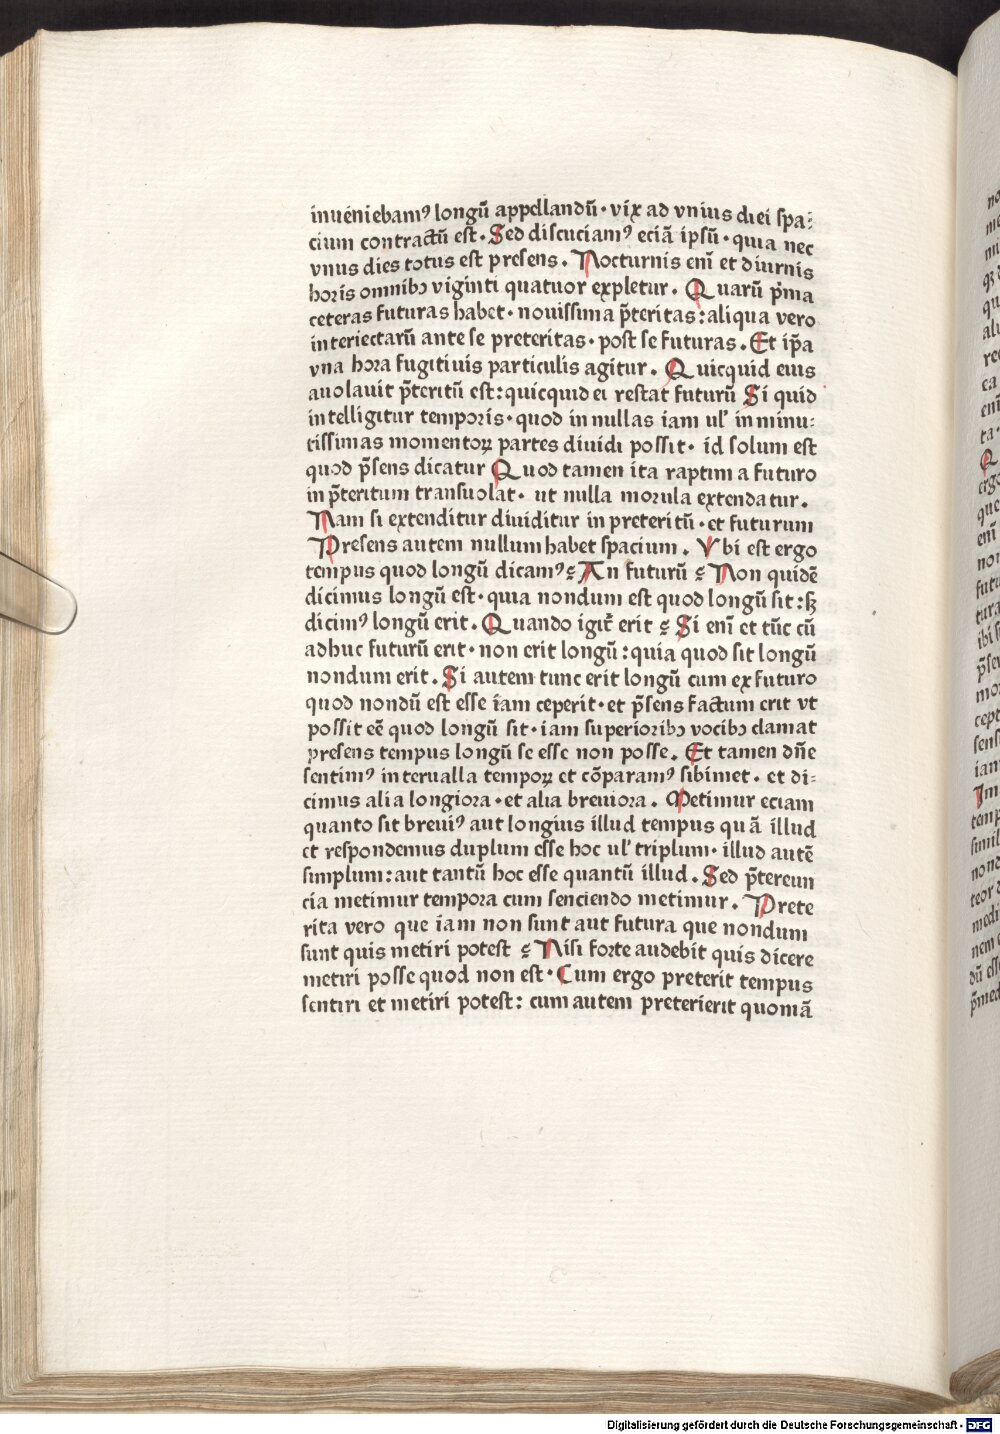 inueniebamꝰ longū appellandū · vix ad vnius diei spa⸗
cium contractū est · Sed discuciamꝰ eciā ipsū · quia nec
vnus dies totus est presens . Nocturnis enī et diurnis
horis omnibꝫ viginti quatuor expletur . Quarū p̄ma
ceteras futuras habet · nouissima p̄teritas : aliqua vero
interiectarū ante se preteritas · post se futuras . Et ip̄a
vna hora fugitiuis particulis agitur . Quicquid eius
auolauit p̄teritū est : quicquid ei restat futurū Si quid
intelligitur temporis · quod in nullas iam ul' in minu⸗
tissimas momentoꝝ partes diuidi possit · id solum est
quod p̄sens dicatur Quod tamen ita raptim a futuro
in p̄teritum transuolat · ut nulla morula extendatur .
Nam si extenditur diuiditur in preteritū · et futurum
Presens autem nullum habet spacium . Vbi est ergo
tempus quod longū dicamꝰ ? An futurū ? Non quidē
dicimus longū est · quia nondum est quod longū sit : sꝫ
dicimꝰ longū erit . Quando igit̄ erit ? Si enī et tūc cū
adhuc futurū erit · non erit longū : quia quod sit longū
nondum erit . Si autem tunc erit longū cum ex futuro
quod nondū est esse iam ceperit · et p̄sens factum erit vt
possit eē quod longū sit · iam superioribꝫ vocibꝫ clamat
presens tempus longū se esse non posse . Et tamen dn̄e
sentimꝰ interualla tempoꝝ et cōparamꝰ sibimet . et di⸗
cimus alia longiora · et alia breuiora . Metimur eciam
quanto sit breuiꝰ aut longius illud tempus quā illud
et respondemus duplum esse hoc ul' triplum · illud autē
simplum : aut tantū hoc esse quantū illud . Sed p̄tereun
cia metimur tempora cum senciendo metimur . Prete
rita vero que iam non sunt aut futura que nondum
sunt quis metiri potest ? Nisi forte audebit quis dicere
metiri posse quod non est · Cum ergo preterit tempus
sentiri et metiri potest : cum autem preterierit quoniā
Digitalisierung gefördert durch die Deutsche Forschungsgemeinschaft - DFG